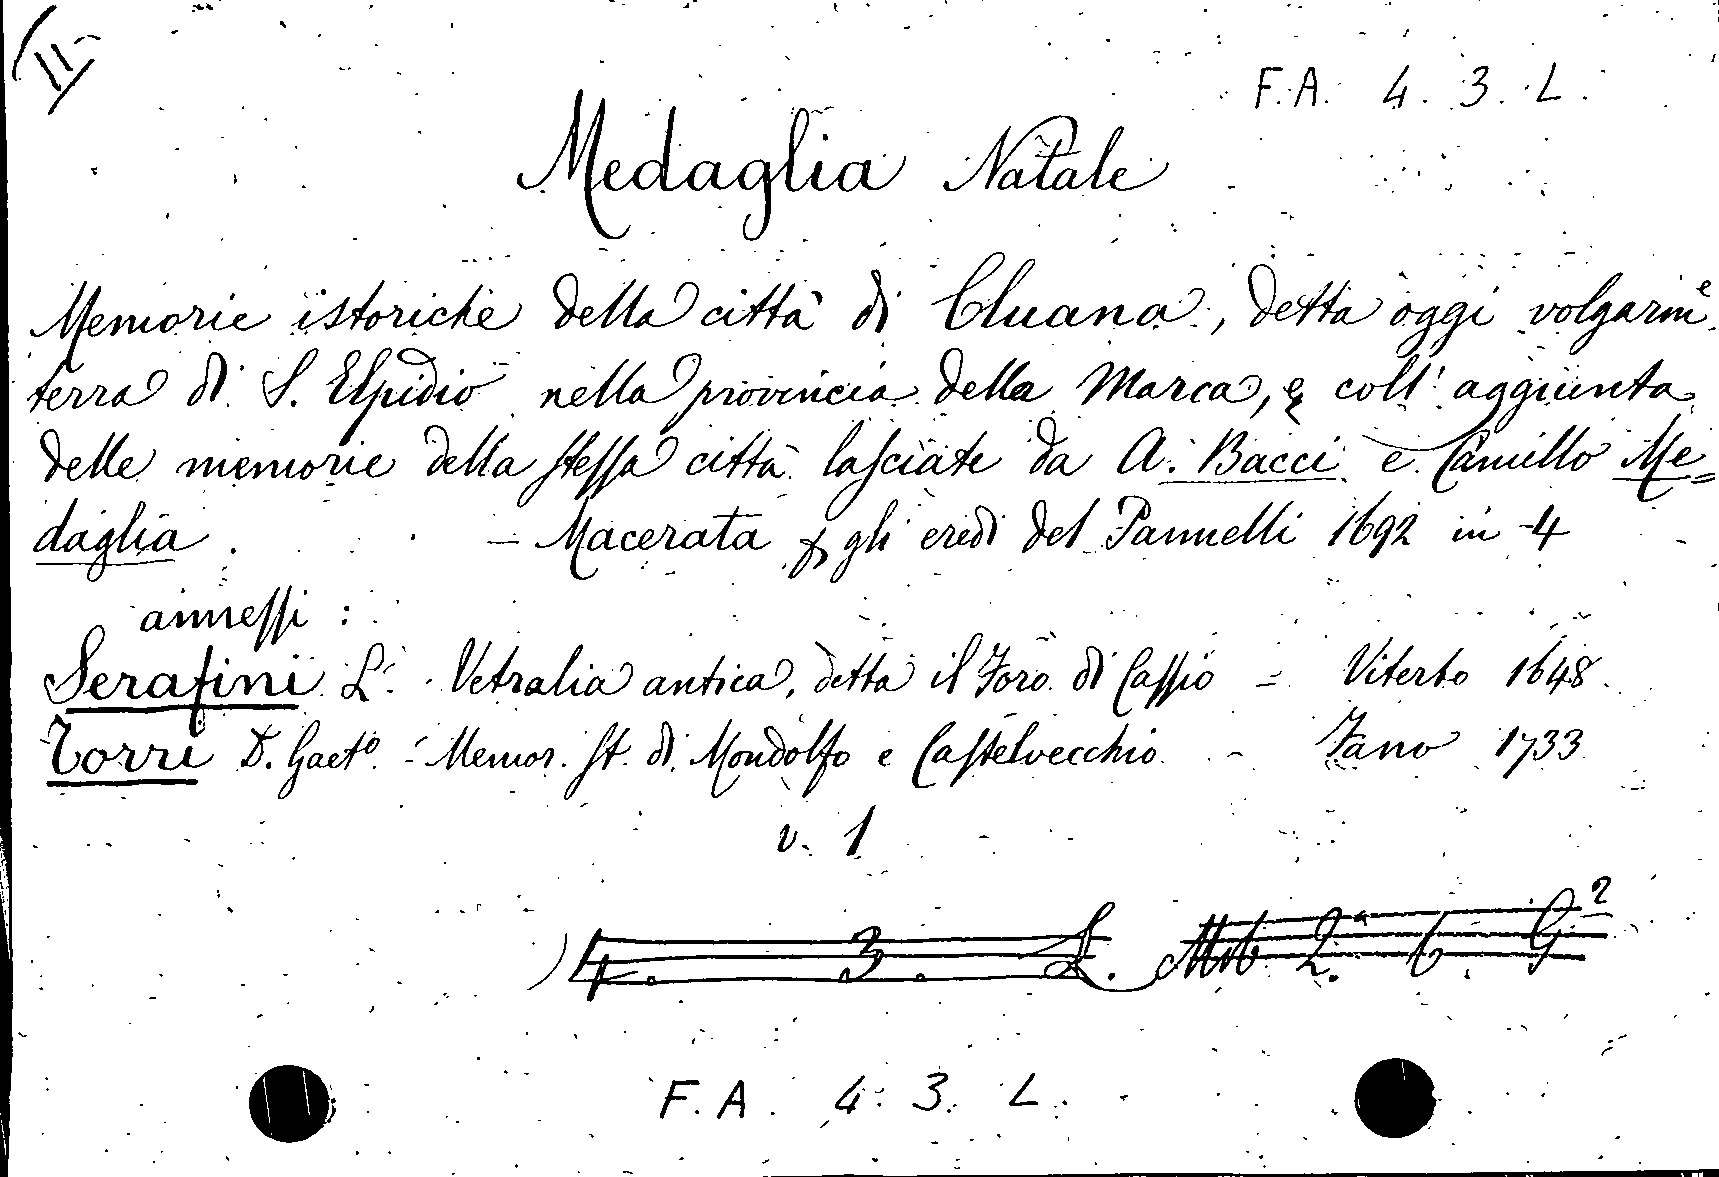 II
F. A. 4. 3. L.
Medaglia Natale
Memorie istoriche della città di Cluana, detta oggi volgarm.e
terra di S. Elpidio nella provincia della Marca, e coll' aggiunta
delle memorie della stessa città lasciate da A. Bacci e Camillo Me=
daglia. — Macerata p gli eredi del Pannelli 1692 in 4
annessi :
Serafini L. Vetralia antica, detta il Foro di Cassio = Viterbo 1648.
Torri D. Gaet.o - Memor. st. di Mondolfo e Castelvecchio - Fano 1733
v. 1
4. 3. L. Mib 2.a 6. G 2
F. A. 4. 3. L.